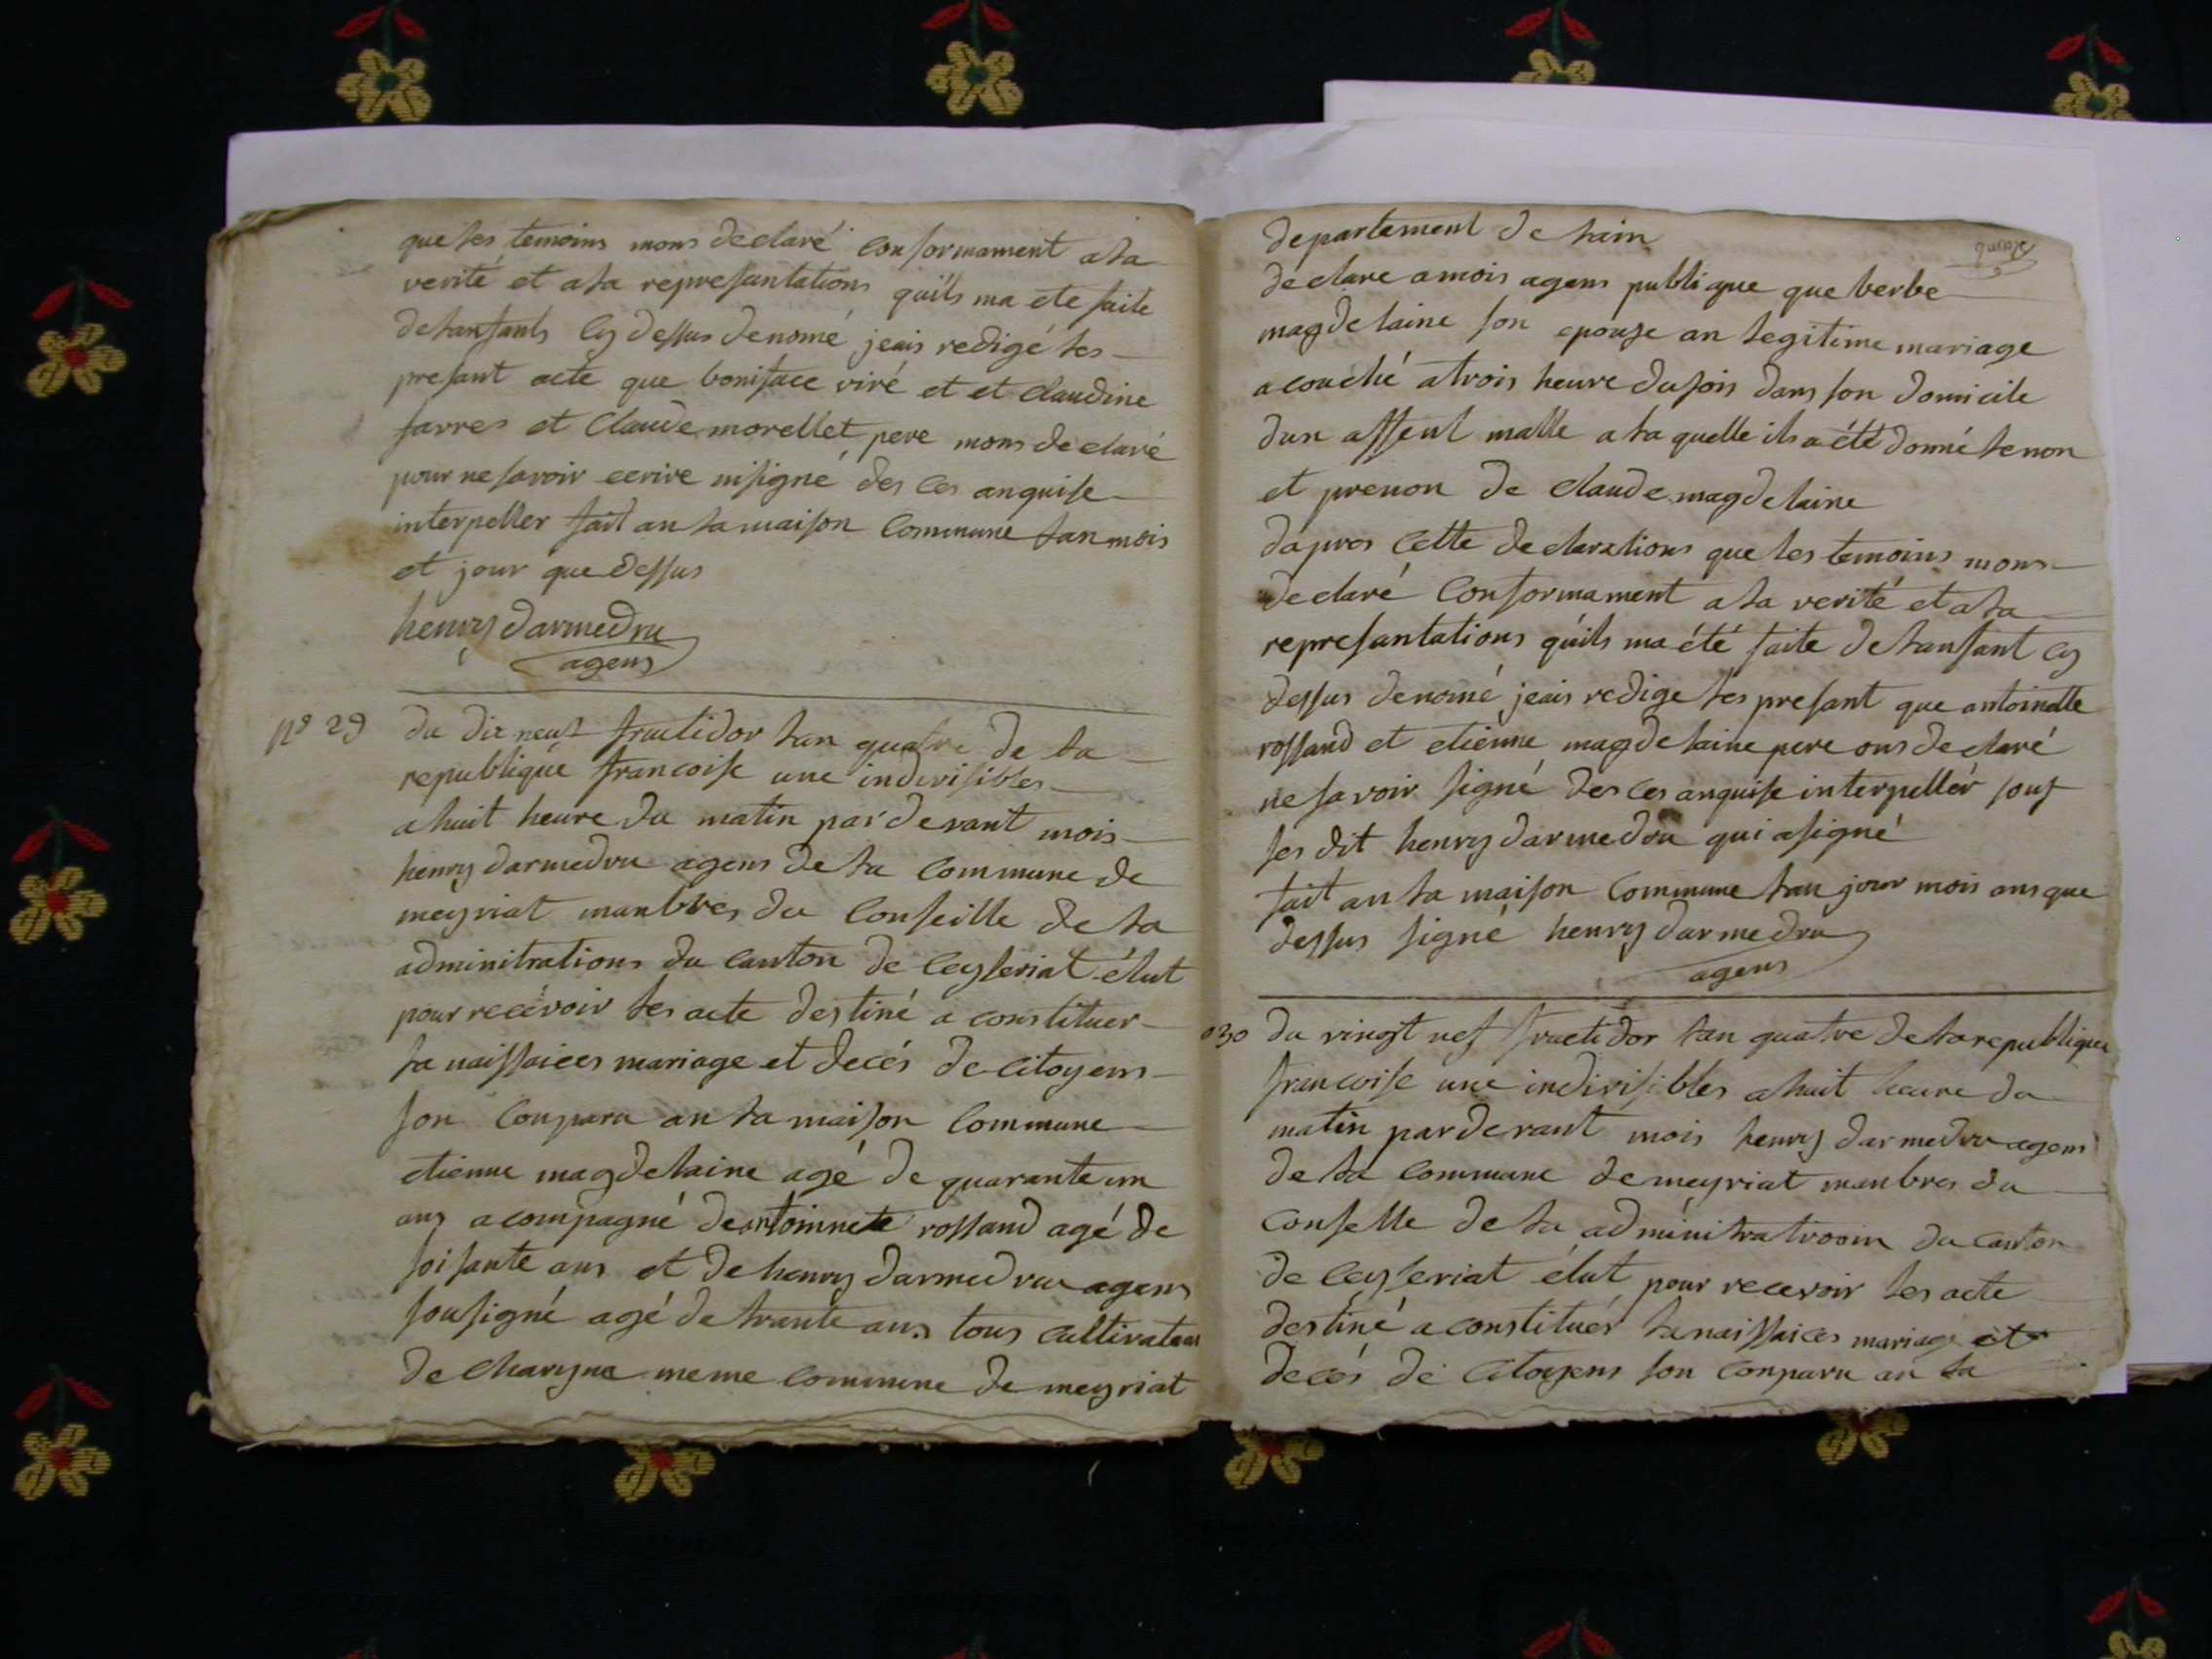 que les temoins mons declaré conformament a la
verité et a la represantations quils ma ete faite
de lanfants cy dessus denomé jeais redigé les
presant acte que boniface viré et et claudine
farres et Claude morellet pere mons declaré
pour ne savoir ecrire ni signé des ces anquise
interpeller fait an la maison commune lan mois
et jour que dessus
henry darmedru
agens
n° 29
du dix neuf fructidor lan quatre de la
republique francoise une indivisibles
a huit heure du matin par devant mois
henry darmedru agens de la commune de
meyriat manbres du Conseille de la
adminitrations du canton de ceyseriat élut
pour recévoir les acte destiné a constituer
la naissaices mariage et decés de citoyens
son conparu an la maison commune
etienne magdelaine agé de quarante un
ans acompagné de antoinnete rossand agé de
soisante ans et de henry darmedru agens
sousigné agé de trante ans tous cultivateur
de charyna meme commune de meyriat
departement de lain
declare a mois agens publique que berbe
magdelaine son epouse an legitime mariage
a couché a trois heure du sois dans son domicile
dun affent malle a la quelle ils a été donné le non
et prenon de claude magdelaine
dapres cette declarations que les temoins mons
declaré conformament a la verité et a la
represantations quils ma été faite de lanfant cy
dessus denomé jeais redige les presant que antoinette
rossand et etienne magdelaine pere ons declaré
ne savoir signé des ces anquise interpellér souf
les dit henry darmedru qui a signé
fait an la maison commune lan jour mois ans que
dessus signé henry darmedru
agens
030
du vingt nef fructidor lan quatre de la republique
francoise une indivisibles a huit heure du
matin par devant mois henry darmedru agens
de la commune de meyriat manbres du
conselle de la adminitratrooin du canton
de ceyseriat élut pour recevoir les acte
destiné a constitués la naissaices mariage et
decés de citoyens son conparu an la